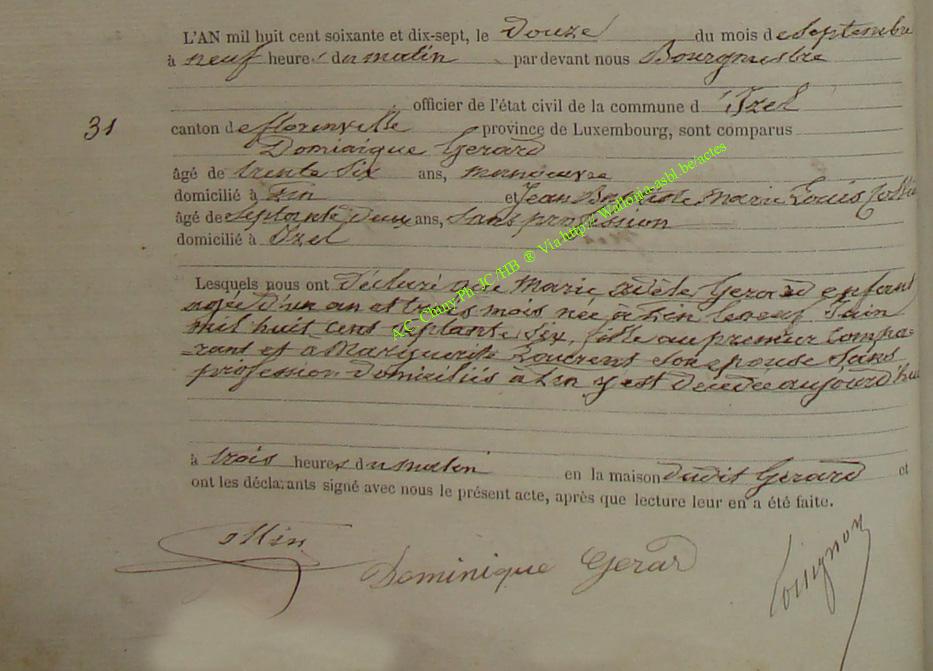 L'AN mil huit cent soixante et dix-sept, le Douze du mois de Septembre
à neuf heures du matin par devant nous Bourgmestre
officier de l'état civil de la commune d'Izel
31
canton de florenville province de Luxembourg, sont comparus
Dominique Gerard
âgé de trente six ans, manœuvre
domicilié à et Jean Baptiste Marie Louis
âgé de septante deux ans, Sans profession
domicilié à Izel
Lesquels nous ont déclaré que Marie Adèle Gerard enfant
agée d'un an et trois mois née à le neuf Juin
mil huit cent septante six, fille du premier compa-
-rant et à Marguerite son épouse Sans
profession domiciliés à y est décédée aujourd'hui
à trois heures du matin en la maison dudit Gerard et
ont les déclarants signé avec nous le présent acte, après que lecture leur en a été faite.
Dominique Gerard
A.C. Chiny Ph JC/HB ® Via http:// Wallonia-asbl.be/actes